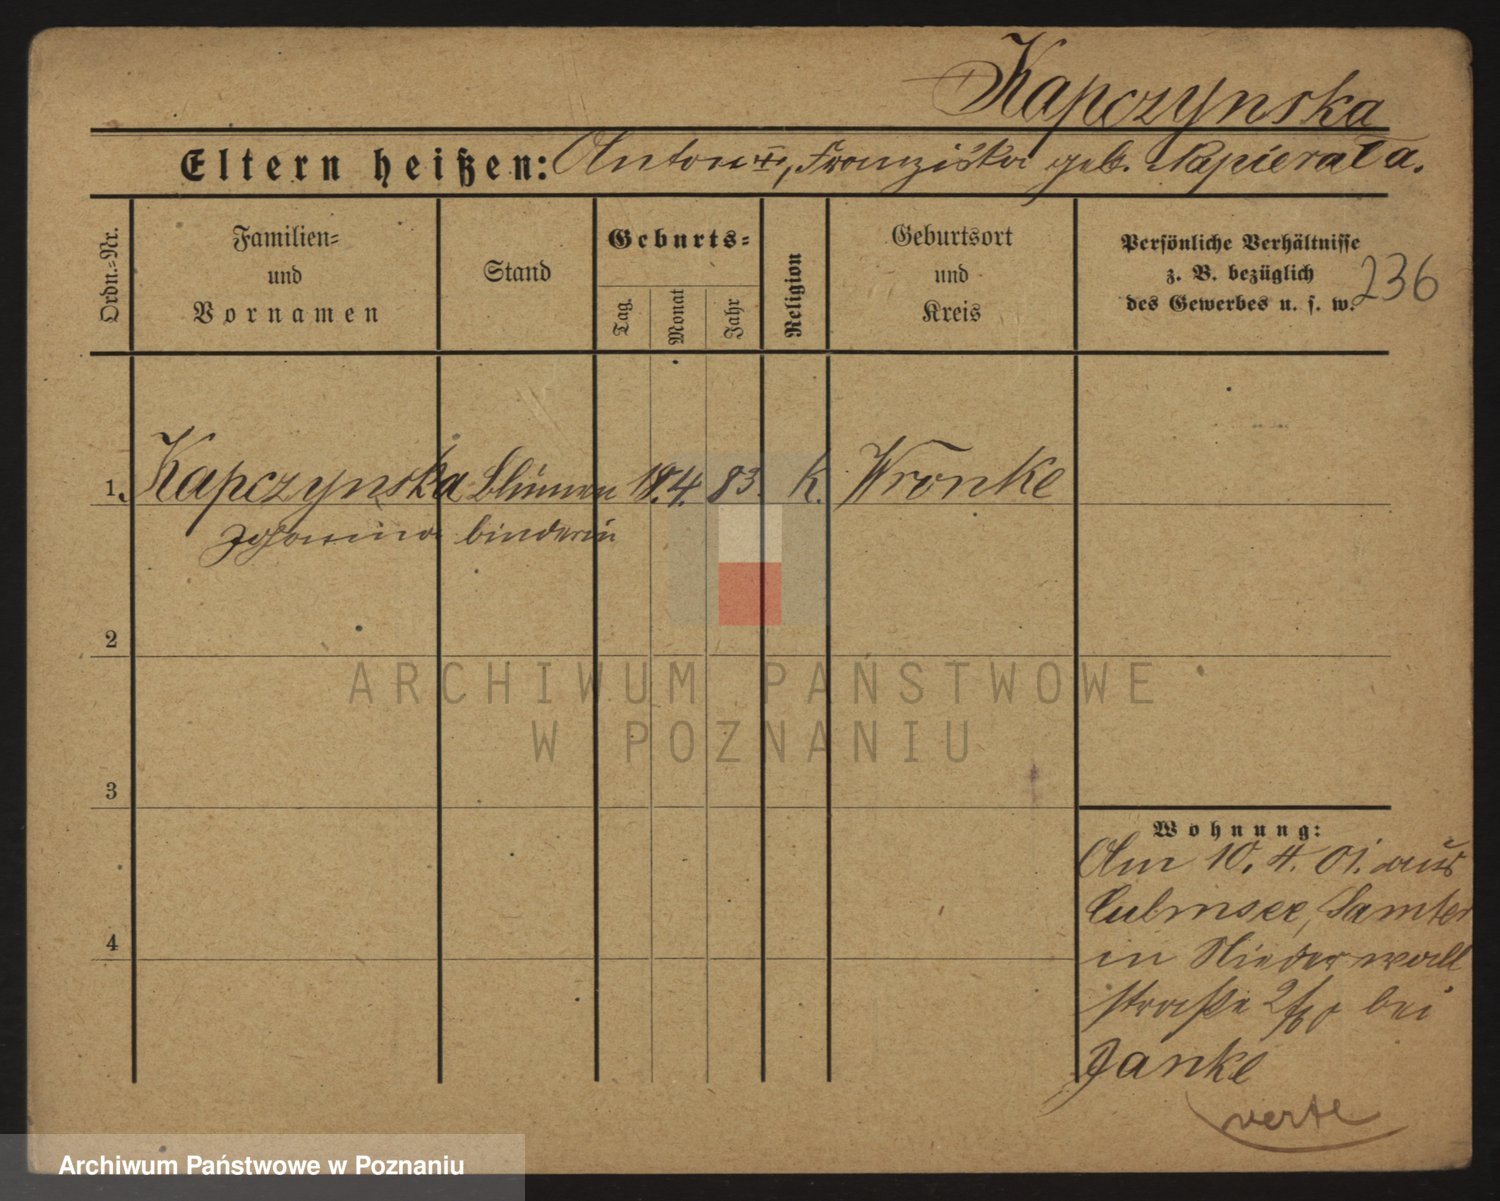 Kapczynska
Eltern heißen: Anton †, Franziska geb. Napierała.
Ordn.-Nr.
Familien-
und
Vornamen
Stand
Geburts-
Tag.
Monat
Jahr
Religion
Geburtsort
und
Kreis
Persönliche Verhältnisse
z. B. bezüglich
des Gewerbes u. s. w.
236
1. Kapczynska Blumen 18. 4. 83. k. Wronke
Johanna binderin
2
3
4
ARCHIWUM PAŃSTWOWE
W POZNANIU
Wohnung:
Am 10. 4. 01. aus
Culmsee, Samter
in Niederwall
straße bei
Janke
verte
Archiwum Państwowe w Poznaniu